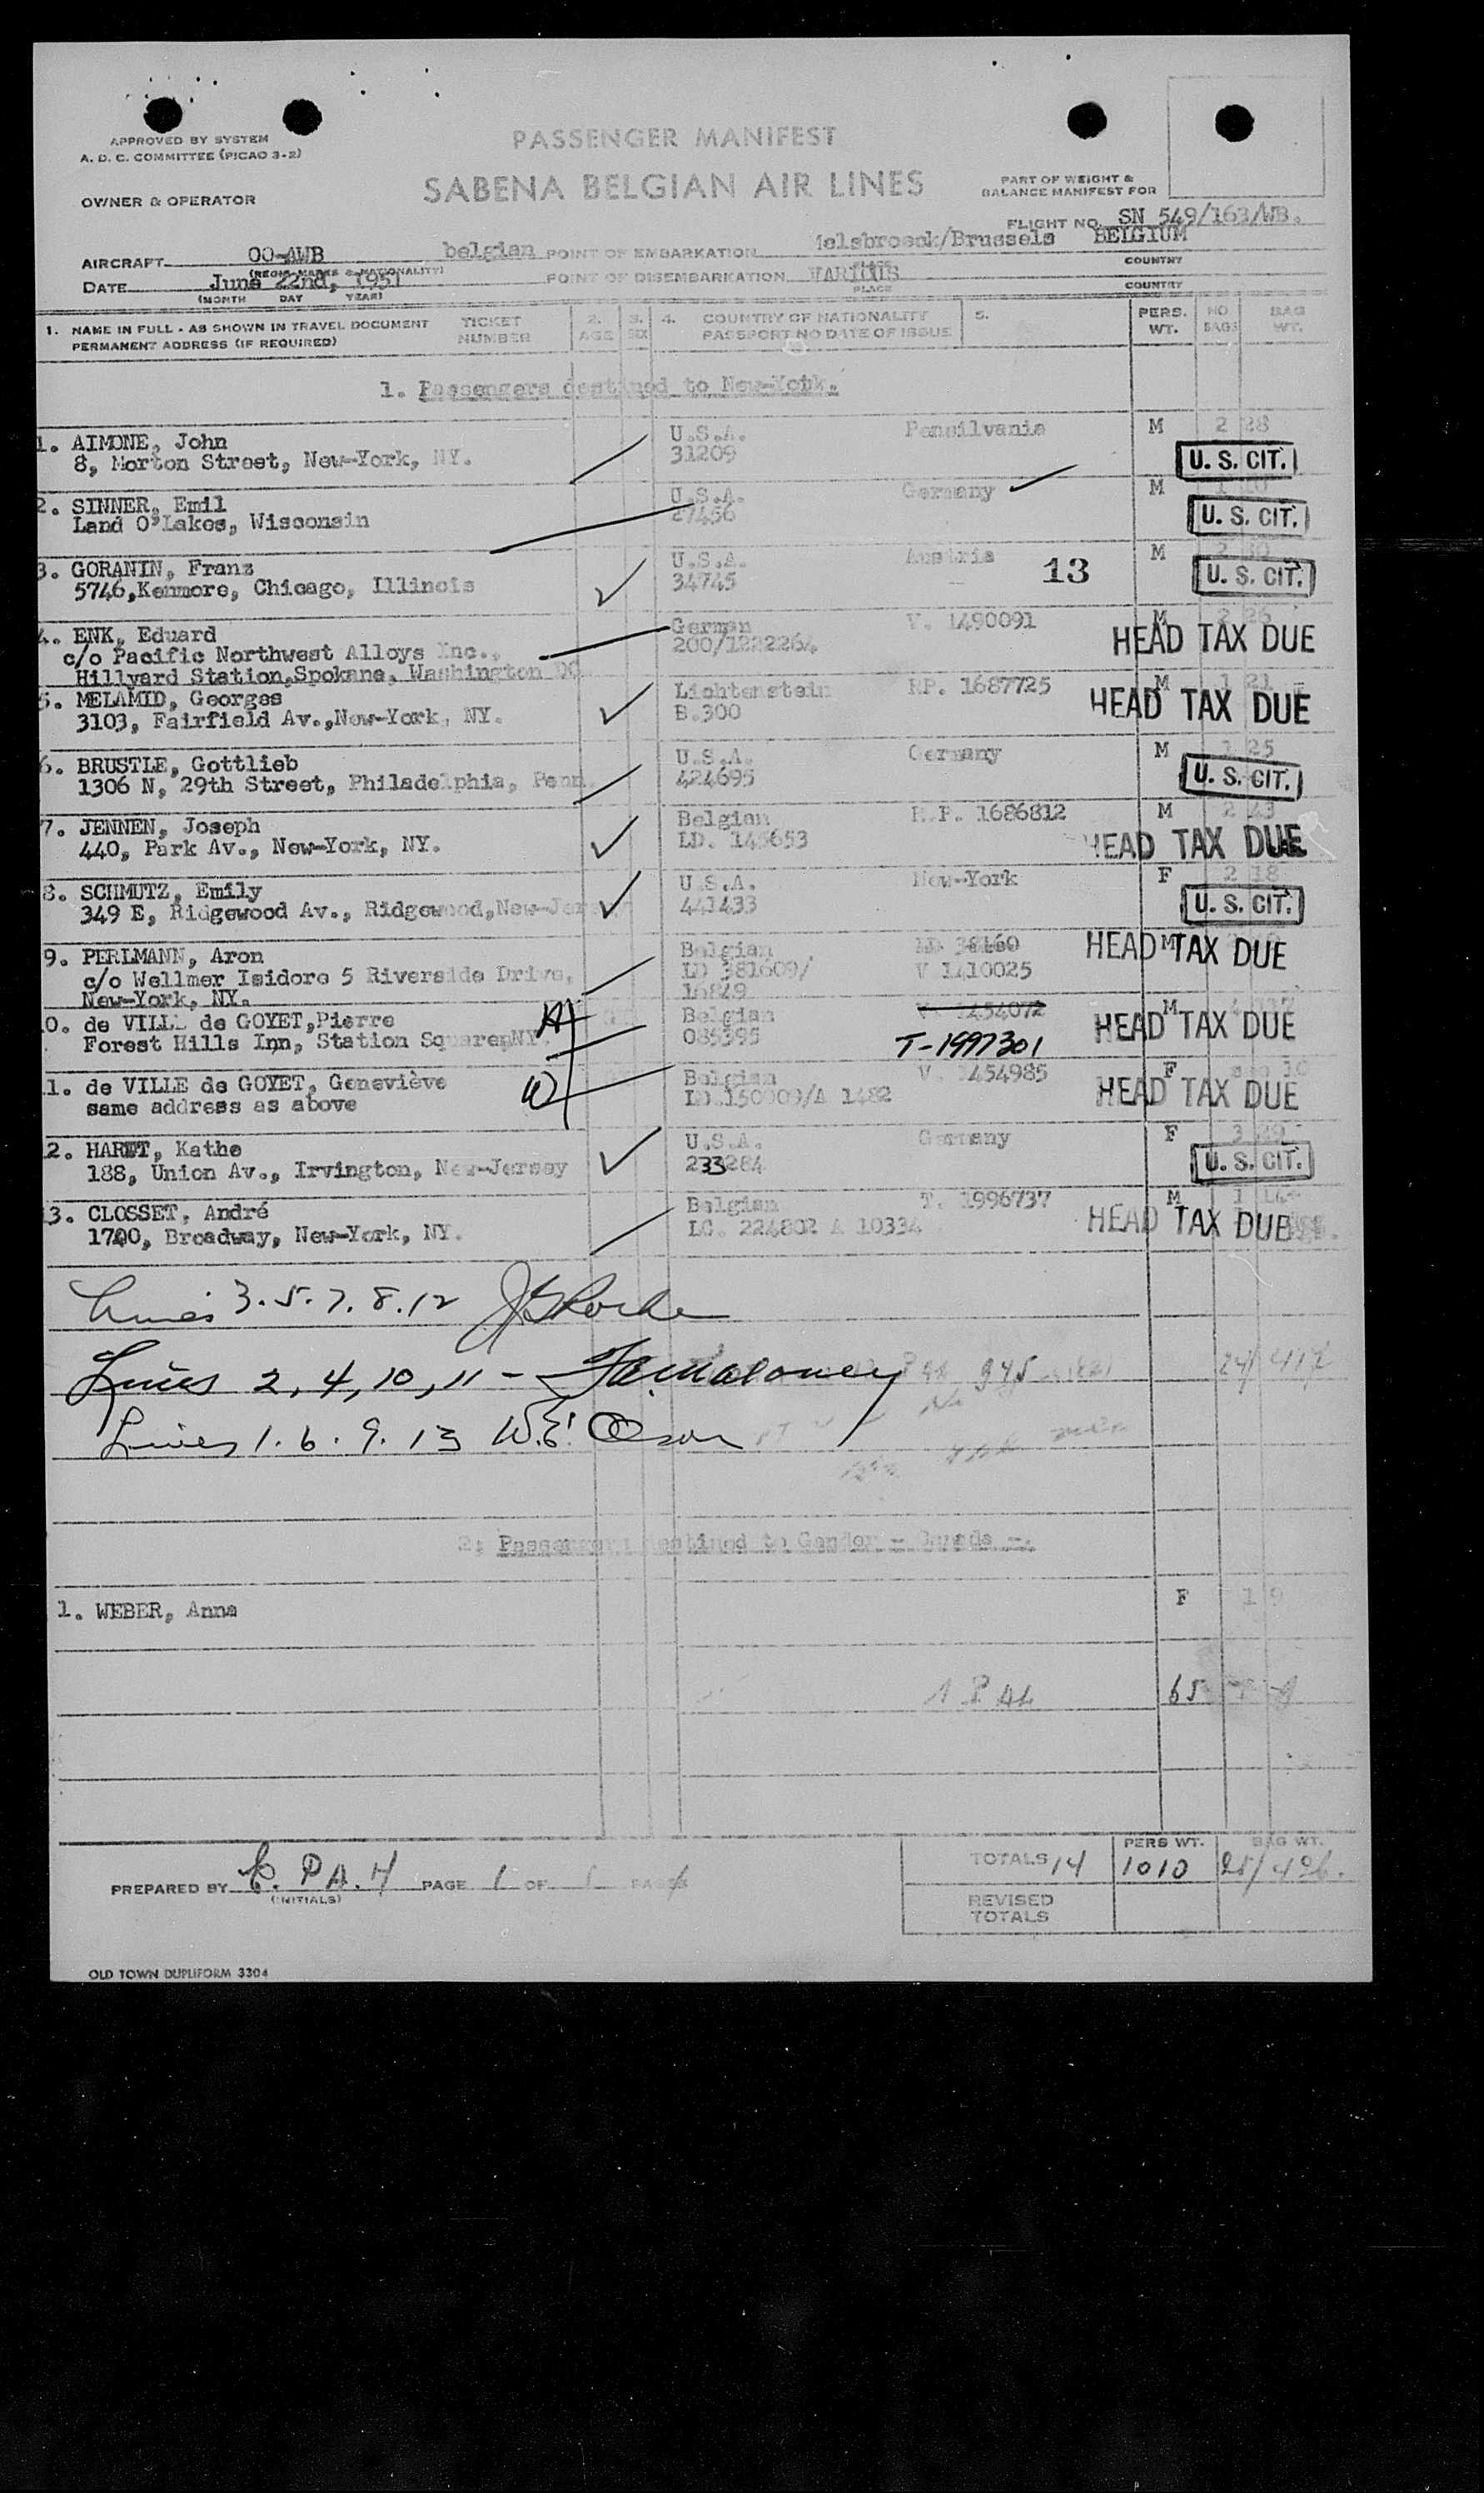 APPROVED BY SYSTEM
A. D. C. COMMITTEE (PICAO 3-2)
PASSENGER MANIFEST
SABENA BELGIAN AIR LINES
PART OF WEIGHT &
BALANCE MANIFEST FOR
OWNER & OPERATOR
FLIGHT NO. SN 549/163/WB.
AIRCRAFT OO-AWB belgian POINT OF EMBARKATION Melsbroeck/Brussels BELGIUM
(REGIS. MARKS & NATIONALITY) PLACE COUNTRY
DATE June 22nd, 1951 POINT OF DISEMBARKATION VARIOUS
(MONTH DAY YEAR) PLACE COUNTRY
1. NAME IN FULL - AS SHOWN IN TRAVEL DOCUMENT TICKET 2. 3. 4. COUNTRY OF NATIONALITY 5. PERS. NO. BAG
PERMANENT ADDRESS (IF REQUIRED) NUMBER AGE SEX PASSPORT NO DATE OF ISSUE WT. BAGS WT.
1. Passengers destined to New-York.
1. AIMONE, John U.S.A. Pensilvania M 2 28
8, Morton Street, New-York, NY. 31209 U. S. CIT.
2. SINNER, Emil U.S.A. Germany M 1
Land O'Lakes, Wisconsin 27456 U. S. CIT.
3. GORANIN, Franz U.S.A. Austria 13 M 2 30
5746, Kenmore, Chicago, Illinois 34745 U. S. CIT.
4. ENK, Eduard German V. 1490091 M 2 26
c/o Pacific Northwest Alloys Inc., 200/1222264 HEAD TAX DUE
Hillyard Station, Spokane, Washington DC
5. MELAMID, Georges Lichtenstein RP. 1687725 M 1 21
3103, Fairfield Av., New-York, NY. B.300 HEAD TAX DUE
6. BRUSTLE, Gottlieb U.S.A. Germany M 1 25
1306 N, 29th Street, Philadelphia, Penn. 424695 U. S. CIT.
7. JENNEN, Joseph Belgian R.P. 1686812 M 2 43
440, Park Av., New-York, NY. LD. 145653 HEAD TAX DUE
8. SCHMUTZ, Emily U.S.A. New-York F 2 18
349 E, Ridgewood Av., Ridgewood, New-Jersey 441433 U. S. CIT.
9. PERLMANN, Aron Belgian LD 38160 M HEAD TAX DUE
c/o Wellmer Isidore 5 Riverside Drive, LD 381609/ V 1410025
New-York, NY. 16849
10. de VILLE de GOYET, Pierre H Belgian V. 1454072 M
Forest Hills Inn, Station Square, NY. 085395 T-1997301 HEAD TAX DUE
11. de VILLE de GOYET, Geneviève W Belgian V. 1454985 F
same address as above LD.150009/A 1482 HEAD TAX DUE
12. HARDT, Kathe U.S.A. Germany F 3 29
188, Union Av., Irvington, New-Jersey 233284 U. S. CIT.
13. CLOSSET, André Belgian T. 1996737 M 1
1700, Broadway, New-York, NY. LC. 224802 A 10334 HEAD TAX DUE
Lines 3. 5. 7. 8. 12
Lines 2, 4, 10, 11 - Maloney 945 24/ 417
Lines 1. 6. 9. 13 W.E. Olson
2. Passengers destined to Gander - Canada -.
1. WEBER, Anna F 1 9
1 PAX 65 1 9
TOTALS 14 PERS WT. 1010 BAG WT. 25/426.
PREPARED BY PAGE 1 OF 1 PAGES
(INITIALS)
REVISED
TOTALS
OLD TOWN DUPLIFORM 3304